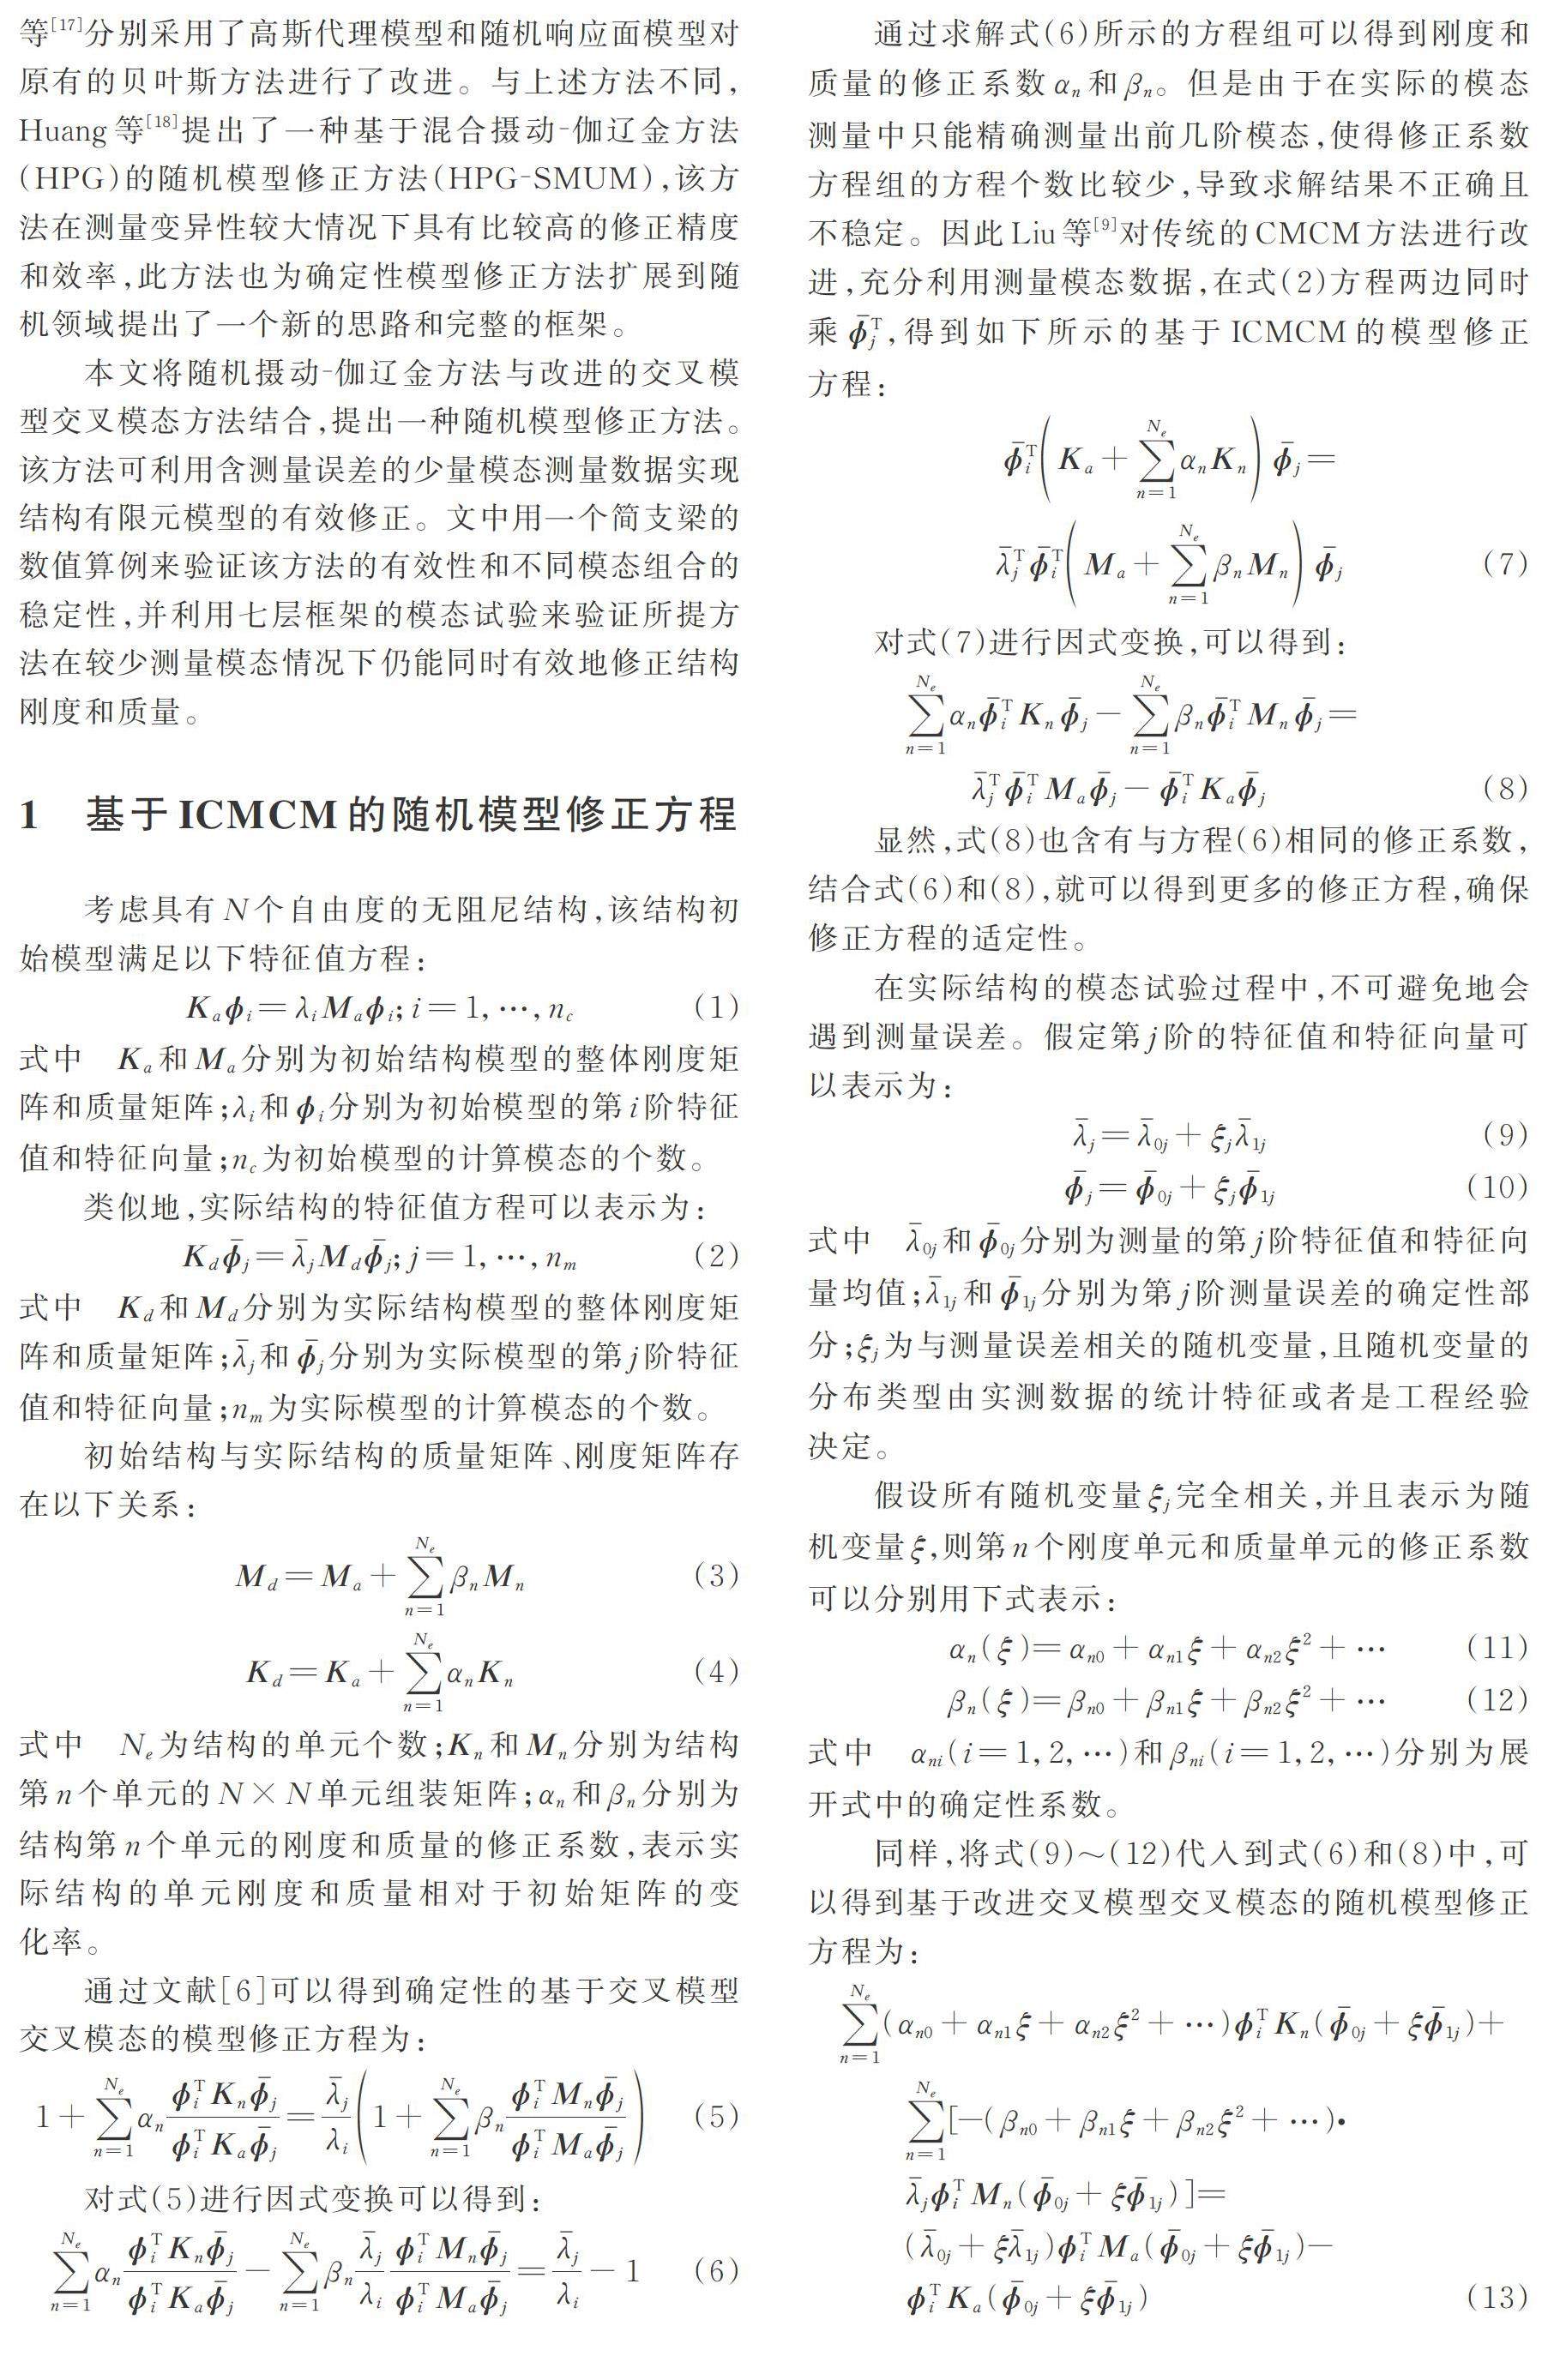 等[17]分别采用了高斯代理模型和随机响应面模型对
原有的贝叶斯方法进行了改进。与上述方法不同,
Huang等[18]提出了一种基于混合摄动-伽辽金方法
(HPG)的随机模型修正方法(HPG-SMUM),该方
法在测量变异性较大情况下具有比较高的修正精度
和效率,此方法也为确定性模型修正方法扩展到随
机领域提出了一个新的思路和完整的框架。
本文将随机摄动-伽辽金方法与改进的交叉模
型交叉模态方法结合,提出一种随机模型修正方法。
该方法可利用含测量误差的少量模态测量数据实现
结构有限元模型的有效修正。文中用一个简支梁的
数值算例来验证该方法的有效性和不同模态组合的
稳定性,并利用七层框架的模态试验来验证所提方
法在较少测量模态情况下仍能同时有效地修正结构
刚度和质量。
1 基于ICMCM的随机模型修正方程
考虑具有N个自由度的无阻尼结构,该结构初
始模型满足以下特征值方程:
K_a ϕ_i = λ_i M_a ϕ_i; i = 1, …, n_c (1)
式中 K_a和M_a分别为初始结构模型的整体刚度矩
阵和质量矩阵;λ_i和ϕ_i分别为初始模型的第i阶特征
值和特征向量;n_c为初始模型的计算模态的个数。
类似地,实际结构的特征值方程可以表示为:
K_d ϕ̄_j = λ̄_j M_d ϕ̄_j; j = 1, …, n_m (2)
式中 K_d和M_d分别为实际结构模型的整体刚度矩
阵和质量矩阵;λ̄_j和ϕ̄_j分别为实际模型的第j阶特征
值和特征向量;n_m为实际模型的计算模态的个数。
初始结构与实际结构的质量矩阵、刚度矩阵存
在以下关系:
M_d = M_a + ∑_{n=1}^{N_e} β_n M_n (3)
K_d = K_a + ∑_{n=1}^{N_e} α_n K_n (4)
式中 N_e为结构的单元个数;K_n和M_n分别为结构
第n个单元的N×N单元组装矩阵;α_n和β_n分别为
结构第n个单元的刚度和质量的修正系数,表示实
际结构的单元刚度和质量相对于初始矩阵的变
化率。
通过文献[6]可以得到确定性的基于交叉模型
交叉模态的模型修正方程为:
1 + ∑_{n=1}^{N_e} α_n (ϕ_i^T K_n ϕ̄_j)/(ϕ_i^T K_a ϕ̄_j) = (λ̄_j/λ_i)(1 + ∑_{n=1}^{N_e} β_n (ϕ_i^T M_n ϕ̄_j)/(ϕ_i^T M_a ϕ̄_j)) (5)
对式(5)进行因式变换可以得到:
∑_{n=1}^{N_e} α_n (ϕ_i^T K_n ϕ̄_j)/(ϕ_i^T K_a ϕ̄_j) − ∑_{n=1}^{N_e} β_n (λ̄_j/λ_i) (ϕ_i^T M_n ϕ̄_j)/(ϕ_i^T M_a ϕ̄_j) = λ̄_j/λ_i − 1 (6)
通过求解式(6)所示的方程组可以得到刚度和
质量的修正系数α_n和β_n。但是由于在实际的模态
测量中只能精确测量出前几阶模态,使得修正系数
方程组的方程个数比较少,导致求解结果不正确且
不稳定。因此Liu等[9]对传统的CMCM方法进行改
进,充分利用测量模态数据,在式(2)方程两边同时
乘ϕ̄_j^T,得到如下所示的基于ICMCM的模型修正
方程:
ϕ̄_i^T (K_a + ∑_{n=1}^{N_e} α_n K_n) ϕ̄_j =
λ̄_j^T ϕ̄_i^T (M_a + ∑_{n=1}^{N_e} β_n M_n) ϕ̄_j (7)
对式(7)进行因式变换,可以得到:
∑_{n=1}^{N_e} α_n ϕ̄_i^T K_n ϕ̄_j − ∑_{n=1}^{N_e} β_n ϕ̄_i^T M_n ϕ̄_j =
λ̄_j^T ϕ̄_i^T M_a ϕ̄_j − ϕ̄_i^T K_a ϕ̄_j (8)
显然,式(8)也含有与方程(6)相同的修正系数,
结合式(6)和(8),就可以得到更多的修正方程,确保
修正方程的适定性。
在实际结构的模态试验过程中,不可避免地会
遇到测量误差。假定第j阶的特征值和特征向量可
以表示为:
λ̄_j = λ̄_{0j} + ξ_j λ̄_{1j} (9)
ϕ̄_j = ϕ̄_{0j} + ξ_j ϕ̄_{1j} (10)
式中 λ̄_{0j}和ϕ̄_{0j}分别为测量的第j阶特征值和特征向
量均值;λ̄_{1j}和ϕ̄_{1j}分别为第j阶测量误差的确定性部
分;ξ_j为与测量误差相关的随机变量,且随机变量的
分布类型由实测数据的统计特征或者是工程经验
决定。
假设所有随机变量ξ_j完全相关,并且表示为随
机变量ξ,则第n个刚度单元和质量单元的修正系数
可以分别用下式表示:
α_n(ξ) = α_{n0} + α_{n1}ξ + α_{n2}ξ² + … (11)
β_n(ξ) = β_{n0} + β_{n1}ξ + β_{n2}ξ² + … (12)
式中 α_{ni}(i = 1, 2, …)和β_{ni}(i = 1, 2, …)分别为展
开式中的确定性系数。
同样,将式(9)~(12)代入到式(6)和(8)中,可
以得到基于改进交叉模型交叉模态的随机模型修正
方程为:
∑_{n=1}^{N_e} (α_{n0} + α_{n1}ξ + α_{n2}ξ² + …)ϕ_i^T K_n(ϕ̄_{0j} + ξϕ̄_{1j}) +
∑_{n=1}^{N_e} [−(β_{n0} + β_{n1}ξ + β_{n2}ξ² + …)•
λ̄_j ϕ_i^T M_n(ϕ̄_{0j} + ξϕ̄_{1j})] =
(λ̄_{0j} + ξλ̄_{1j})ϕ_i^T M_a(ϕ̄_{0j} + ξϕ̄_{1j}) −
ϕ_i^T K_a(ϕ̄_{0j} + ξϕ̄_{1j}) (13)